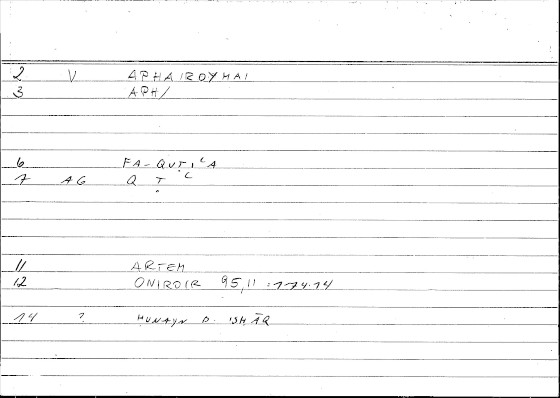 2 V APHAIROYMAI
3 APH/
6 FA-QUṬILA
7 AG Q Ṭ L
11 ARTEM
12 ONIRDIR 95,11 :174.14
14 ? HUNAYN B. ISHĀQ